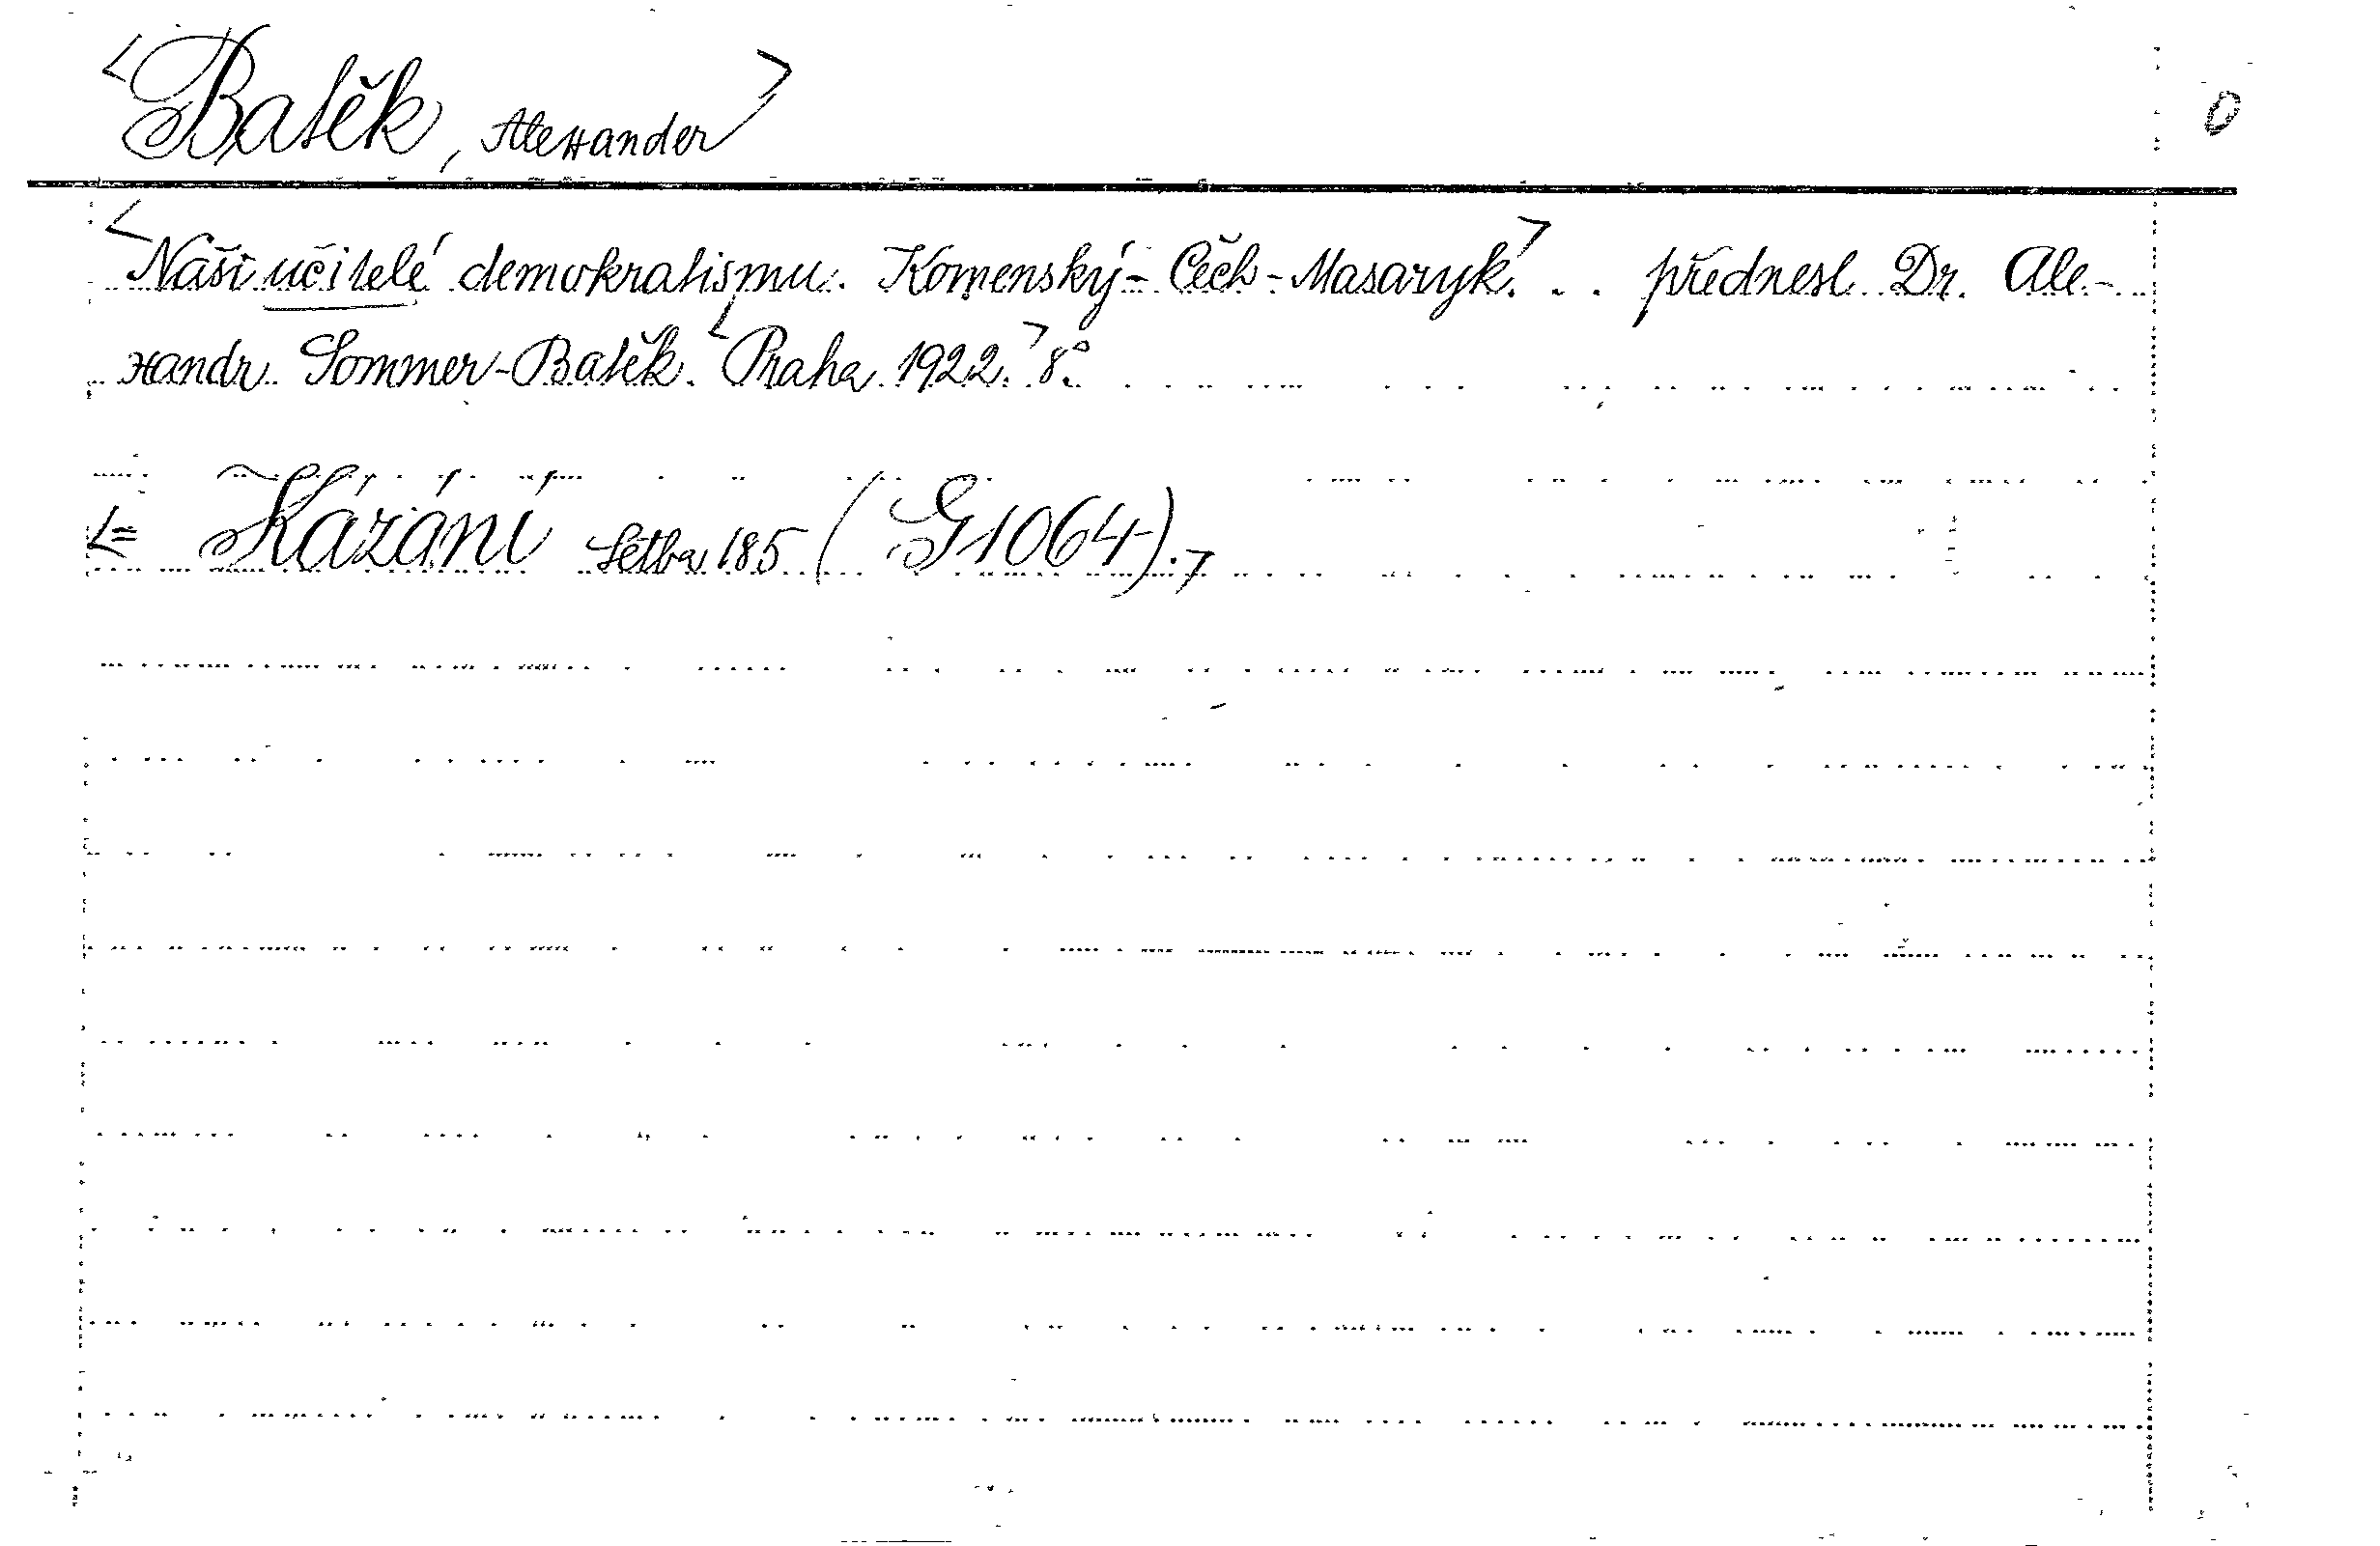 <Batěk, Alexander> 0
<Naši učitelé demokratismu. Komenský - Čech - Masaryk.> . . přednesl Dr. Ale-
xandr Sommer-Batěk. <Praha 1922.> 8°.
<= Kázání Setba 185 (G 1064).>